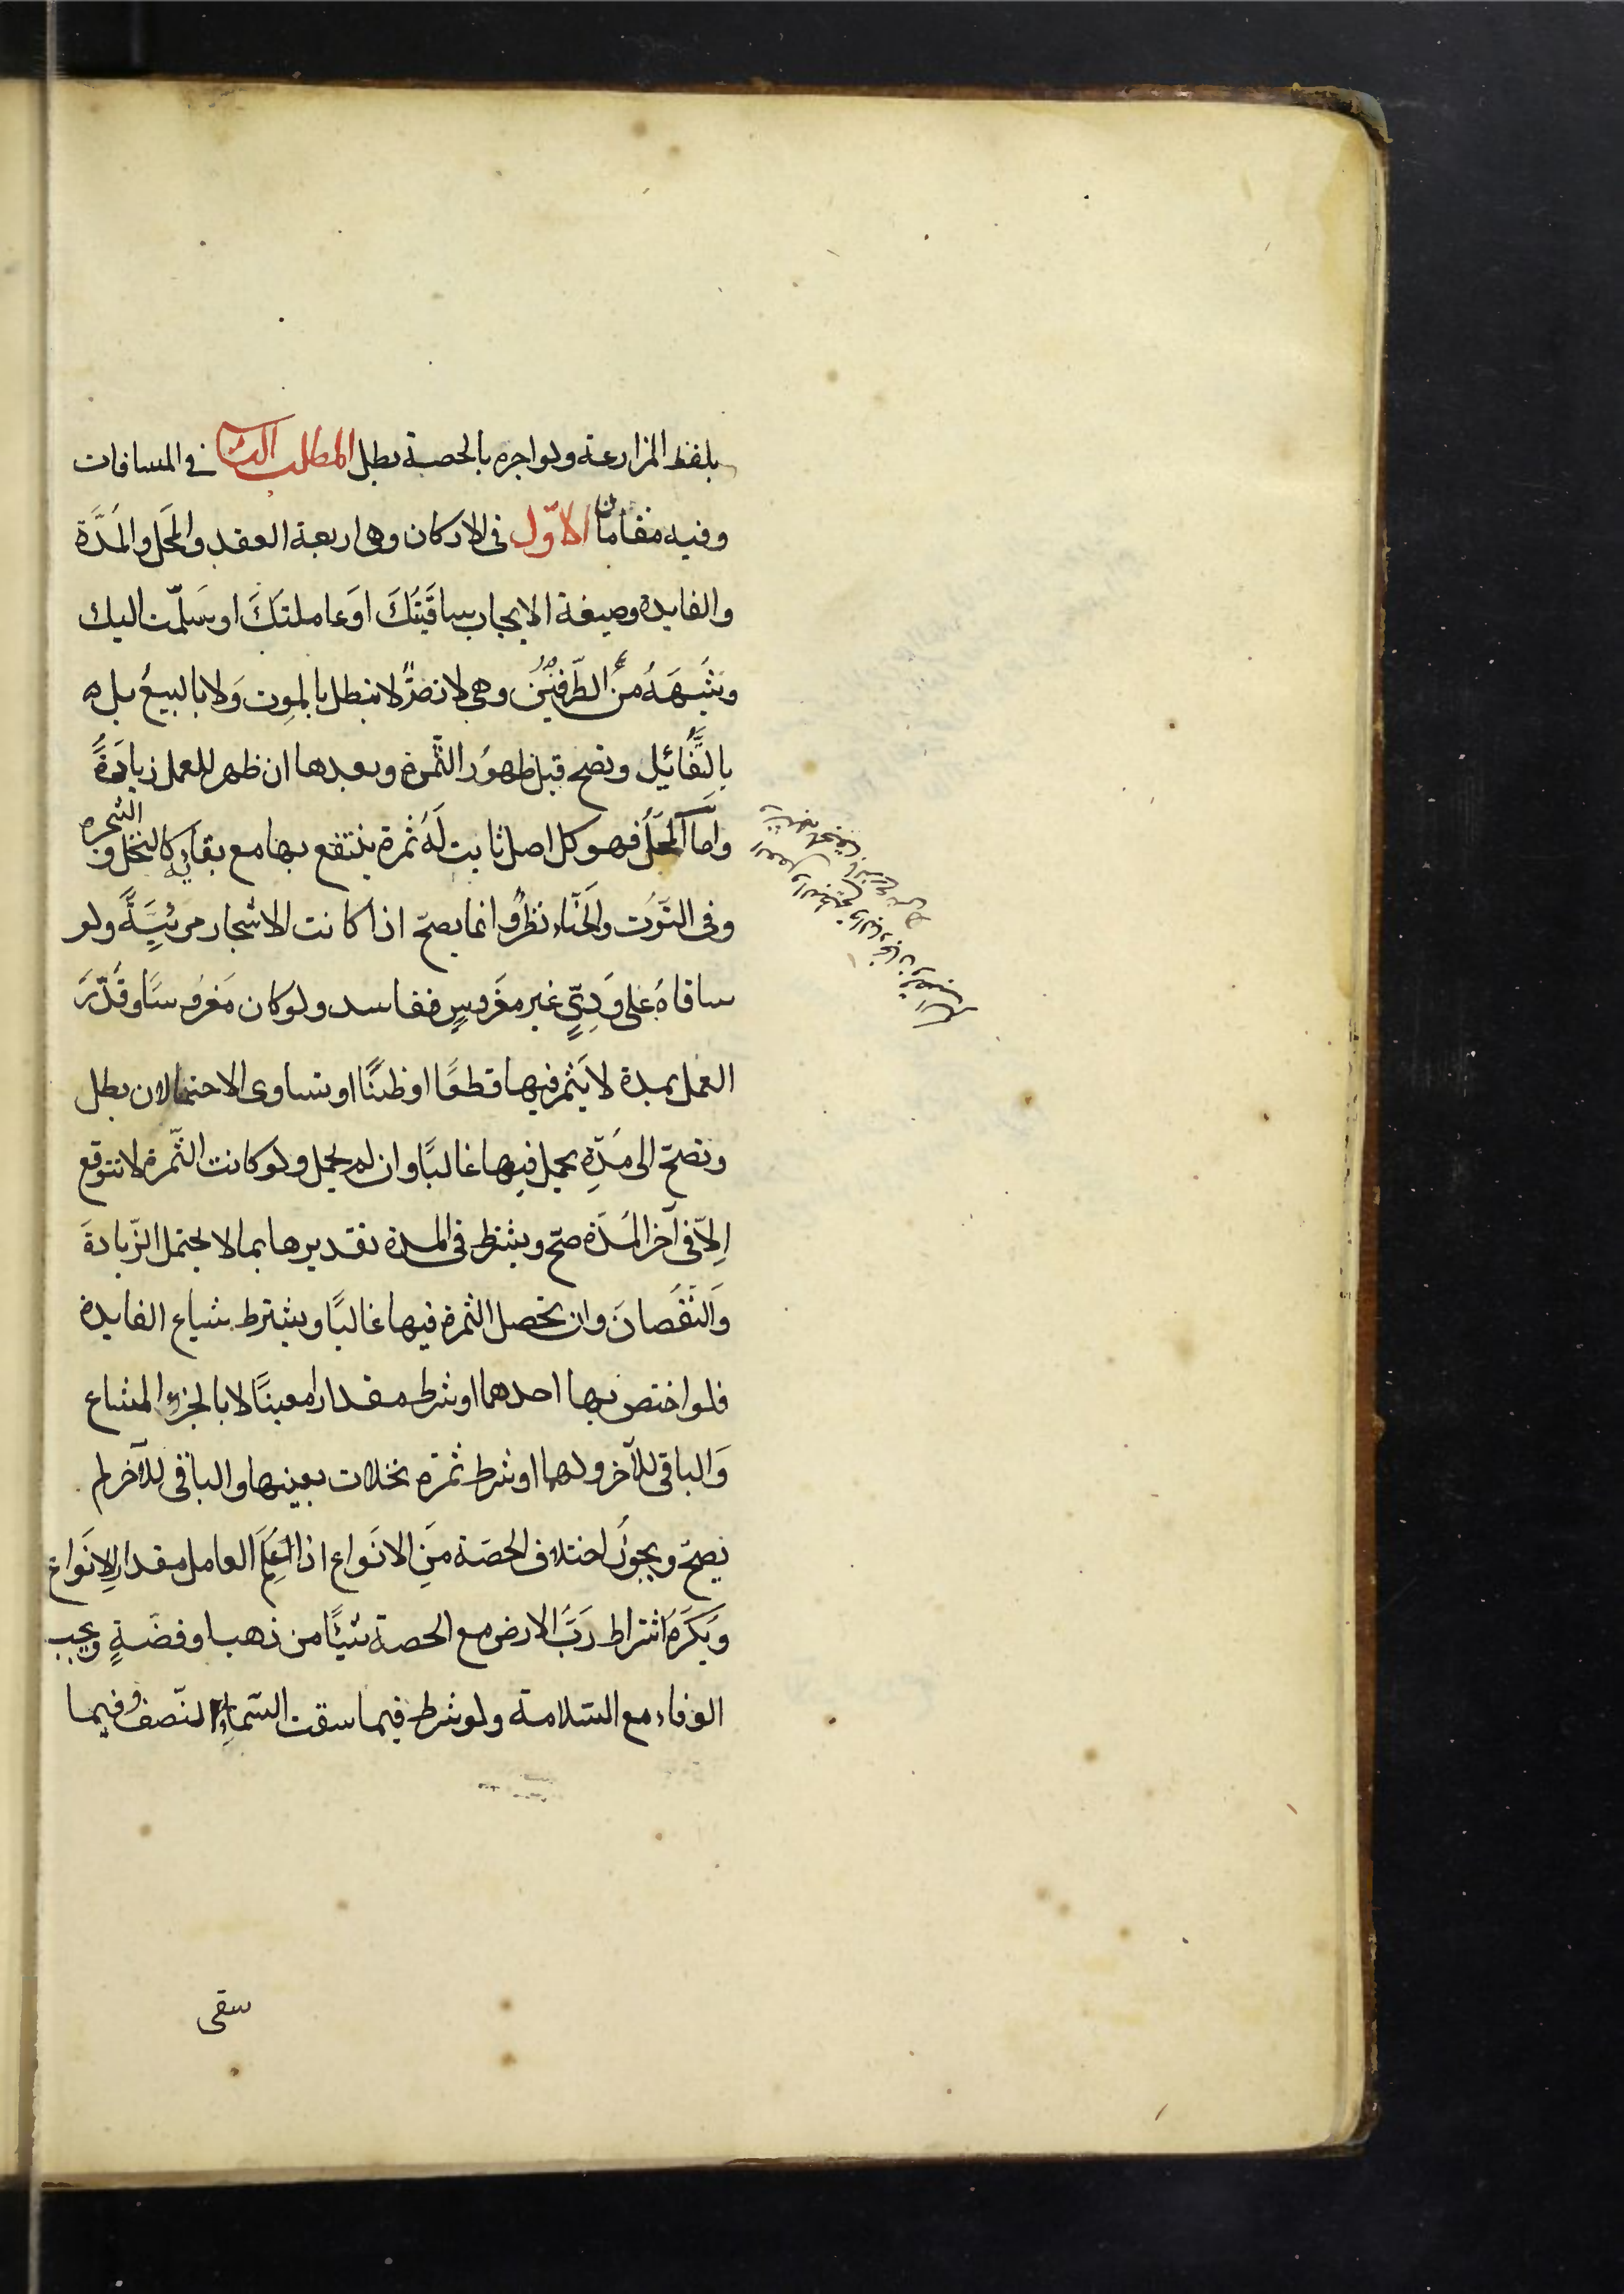 بلفظ المزارعة ولو اجره بالحصة بطل المطلب الثالث في المساقات
وفيه مقامان الاوّل في الاركان وهي اربعة العقد والمحَل والمدَّة
والفايدة وصيغة الايجاب ساقَيتَكَ او عاملتكَ او سَلّمت اليك
وشبهَهُ من الطّرفين وهي لا تبطل بالموت وَلا بالبيعُ بل
بالتَّقائيل وتصح قبل ظهوُر الثّمرة وبعدها ان ظهر للعمل زيادَةً
وامّا المحَلّ فهو كل اصل ثابت لَهُ ثمرة ينتفع بها مع بقائه كالنخل و الشجره
وفي التّوُت والحنّاء نظرٌ و انما يصحّ اذا كانت الاشجار مرئيّةً ولو
ساقاهُ على وَدِيٍّ غير مغروسٍ ففاسد ولو كان مَغرُوسًا وقَدّرَ
العمل بمدة لا يَثمر فيها قطعًا او ظنًّا او تساوى الاحتمالان بطل
وتصحّ الى مُدّةِ يحمل فيها غالبًا وان لم يحمل ولو كانت الثّمرة لا تتوقع
اِلاّ في آخر المُدّة صحّ ويشترط في المدة تقديرها بما لا يحتمل الزّيادةَ
وَالنّقصَانَ وان تحصل الثمرة فيها غالبًا ويشترط شياع الفايدة
فلو اختص بها احدهما او شرط مقدارا معينًا لا بالجزء المشاع
وَالباقي للآخر ولهما او شرط ثمرة نخلات بعينها والباقي للآخر لم
يصحّ ويجوزُ اختلاف الحصّة مِنَ الانوَاع اذا عَلِمَ العامل مقدار الانَواع
وَيكرَهُ اشتراط رَبَّ الارض مع الحصة شيئًا من ذهب او فضّةٍ ويجب
الوفاء مع السّلامة ولو شرط فيما سقت السّماءِ النّصف وفيما
سقى